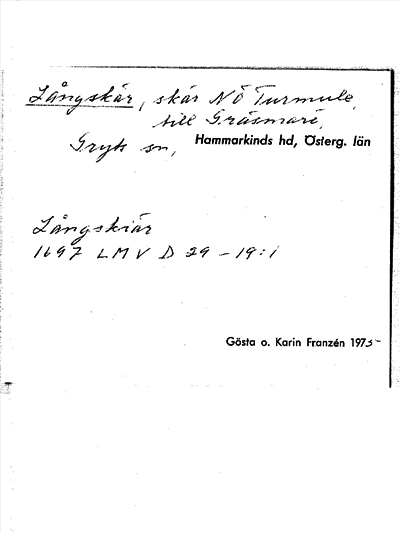 Långskär, skär NÖ Turmule,
till Gräsmarö,
Gryts sn, Hammarkinds hd, Österg. län
Långskiär
1697 LMV D 29-19:1
Gösta o. Karin Franzén 1975